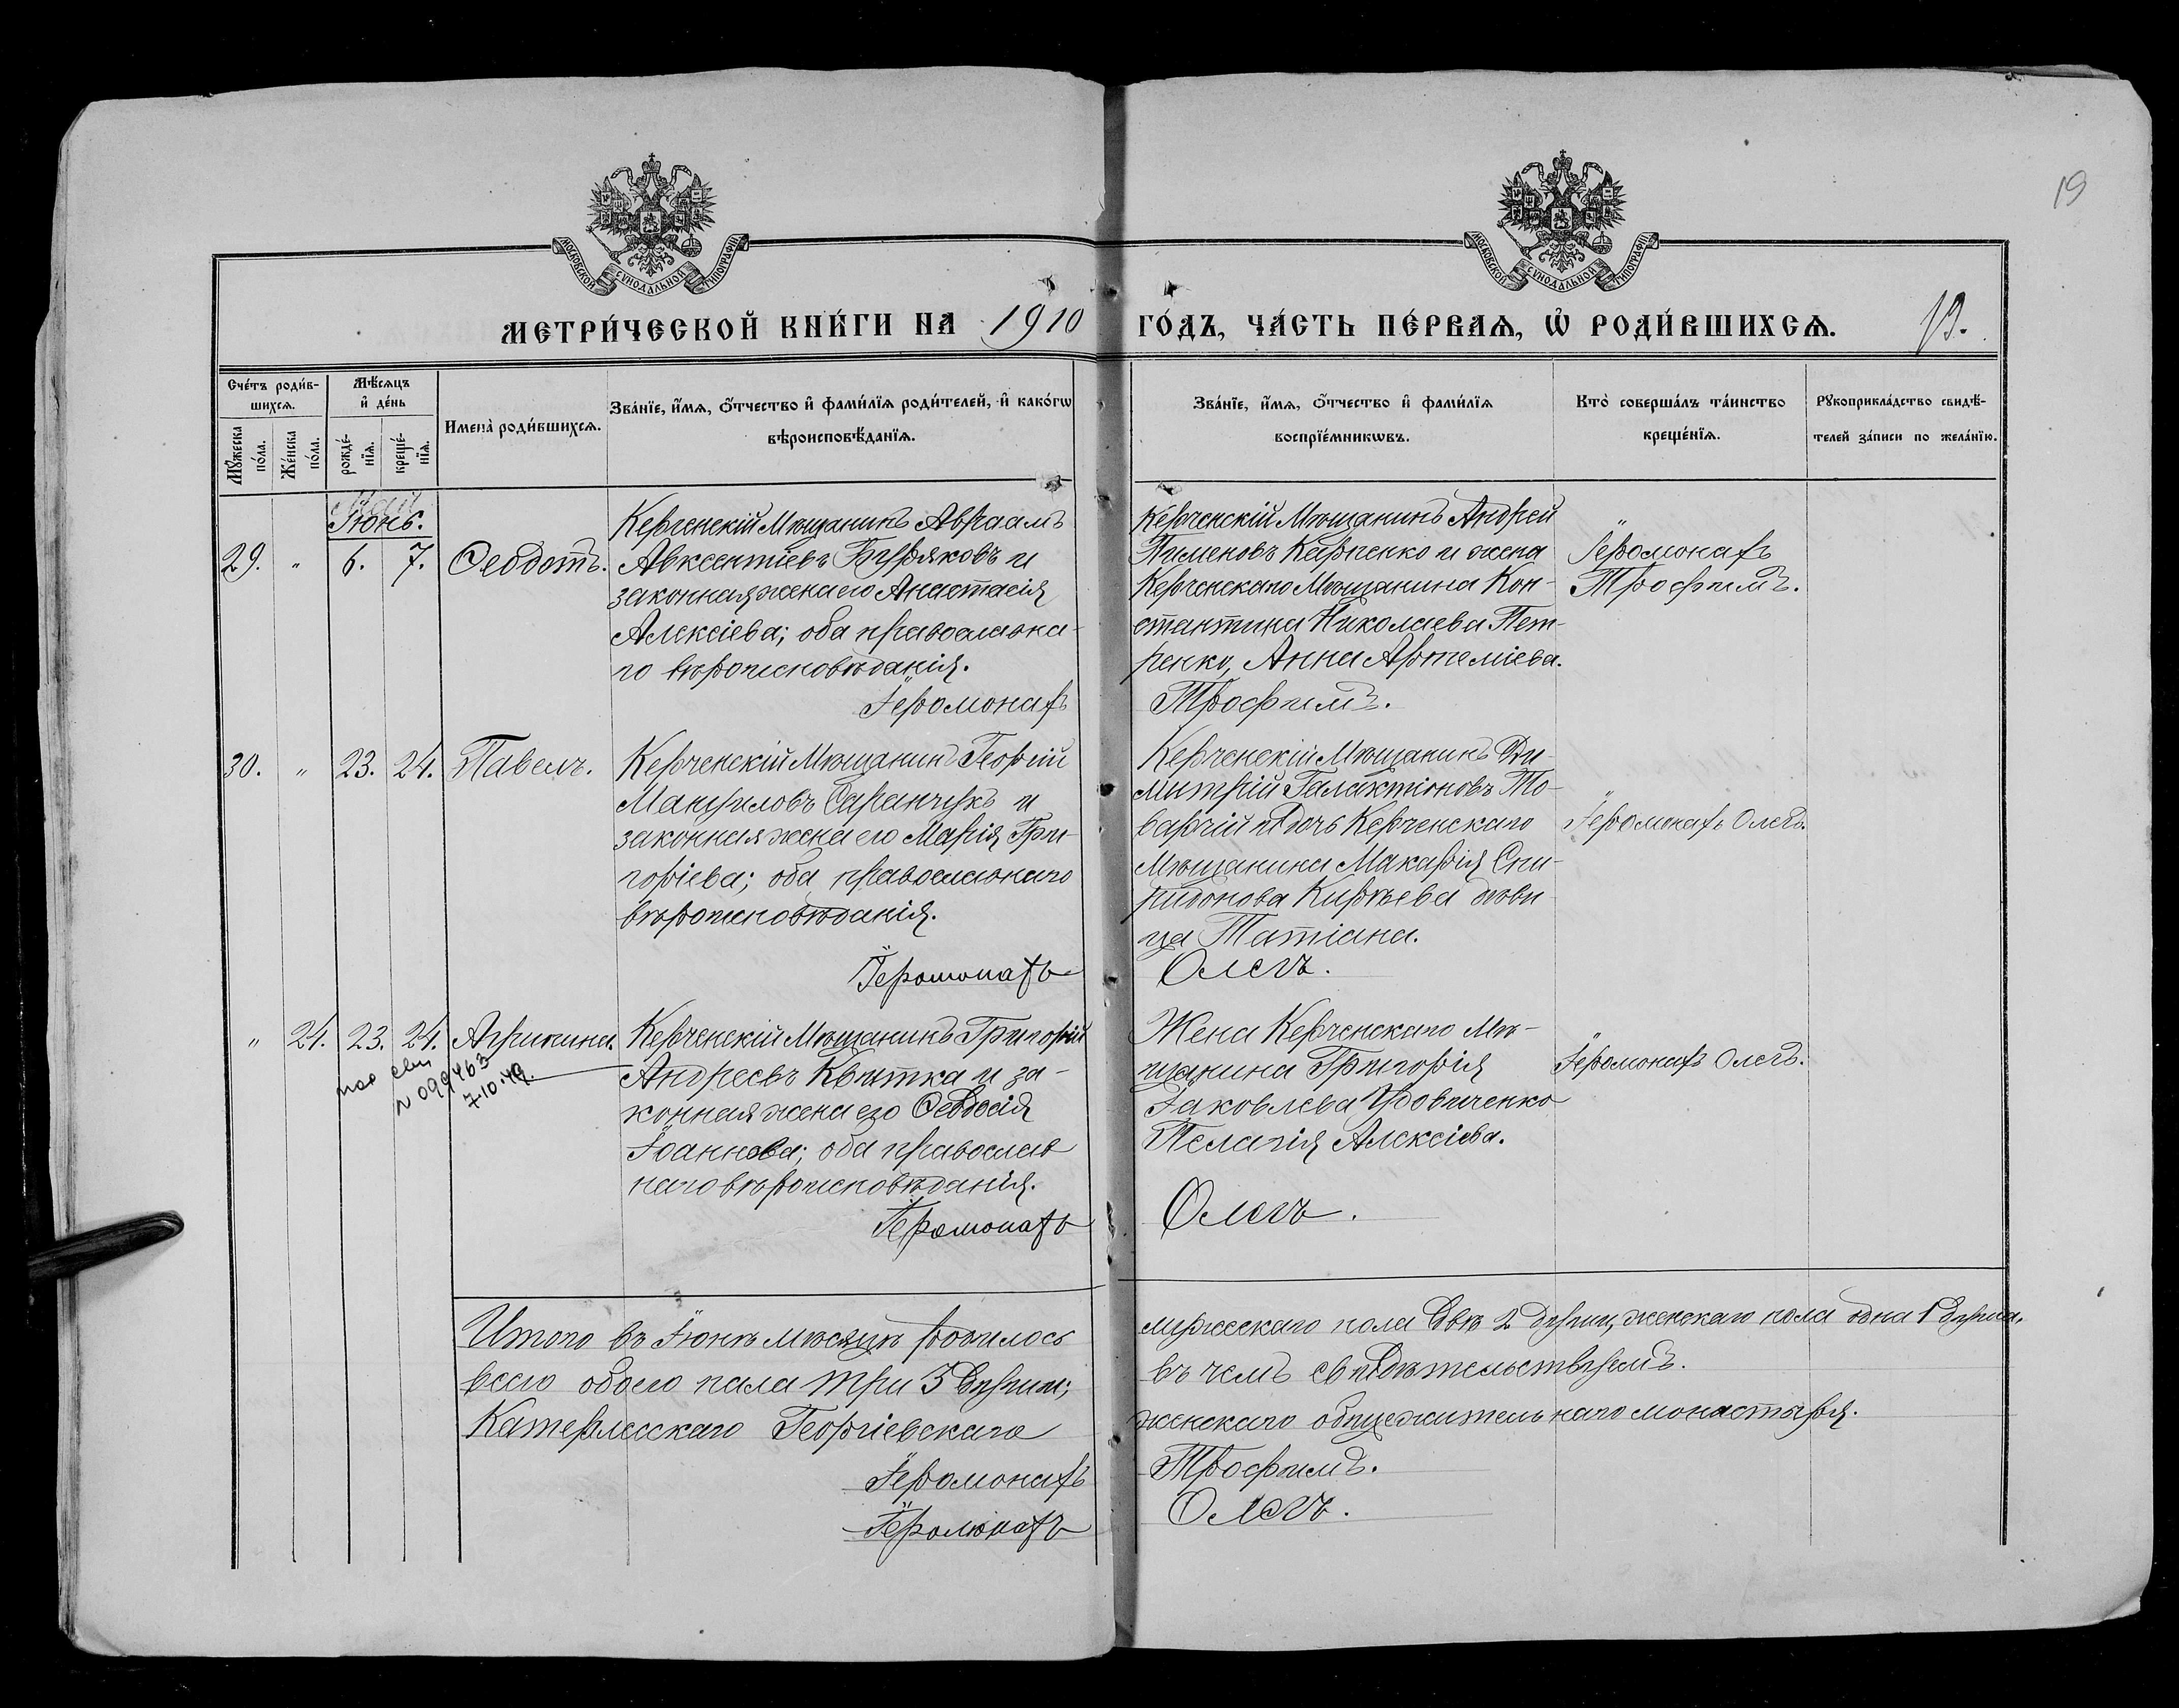 19
МОСКОВСКОЙ СѴНОДАЛЬНОЙ ТИПОГРАФІИ
МОСКОВСКОЙ СѴНОДАЛЬНОЙ ТИПОГРАФІИ
МЕТРИ́ЧЕСКОЙ КНИ́ГИ НА 1910 ГО́ДЪ, ЧА́СТЬ ПЕ́РВАѦ, Ѽ РОДИ́ВШИХСѦ. 19.
Сче́тъ роди́в-
шихсѧ.
Мꙋ́жеска по́ла.
Же́нска по́ла.
Мѣ́сѧцъ
и҆ де́нь
рожде́-
нїѧ.
креще́-
нїѧ.
Имена̀ роди́вшихсѧ.
Зва́нїе, и҆́мѧ, ѻ҆́тчество и҆ фами́лїѧ роди́телей, и҆ како́гѡ
вѣроисповѣ́данїѧ.
Зва́нїе, и҆́мѧ, ѻ҆́тчество и҆ фами́лїѧ
воспрїе́мникѡвъ.
Кто̀ соверша́лъ та́инство
креще́нїѧ.
Рꙋкоприкла́дство свидѣ́-
телей за́писи по жела́нїю.
Май
Іюнь.
29. " 6. 7. Ѳеодотъ.
Керченскій Мѣщанинъ Авраамъ
Авксентіевъ Буряковъ и
законная жена его Анастасія
Алексіева; оба православна-
го вѣроисповѣданія.
Іеромонахъ
Керченскій Мѣщанинъ Андрей
Пименовъ Карпенко и жена
Керченскаго Мѣщанина Кон-
стантина Николаева Пет-
ренко, Анна Артеміева.
Трофимъ.
Іеромонахъ
Трофимъ.
30. " 23. 24. Павелъ.
Керченскій Мѣщанинъ Георгій
Мануиловъ Саранчукъ и
законная жена его Марія Гри-
горіева; оба православнаго
вѣроисповѣданія.
Іеромонахъ
Керченскій Мѣщанинъ Ди-
митрій Галактіоновъ То-
варчій и дочь Керченскаго
Мѣщанина Макарія Спи-
ридонова Кирѣева дѣви-
ца Татіана.
Олегъ.
Іеромонахъ Олегъ.
" 21. 23. 24. Агрипина.
N 099463
7·10·49.
Керченскій Мѣщанинъ Григорій
Андреевъ Квитка и за-
конная жена его Ѳеодосія
Іоаннова; оба православ
наго вѣроисповѣданія.
Іеромонахъ
Жена Керченскаго Мѣ-
щанина Григорія
Іаковлева Удовиченко
Пелагія Алексіева.
Олегъ.
Іеромонахъ Олегъ.
Итого въ Іюнѣ мѣсяцѣ родилось
всего обоего пола три 3 души;
мужескаго пола двѣ 2 души, женскаго пола одна 1 душа.
въ чемъ свидѣтельствуемъ.
Катерлесскаго Георгіевскаго женскаго общежительнаго монастыря.
Іеромонахъ Трофимъ.
Іеромонахъ Олегъ.